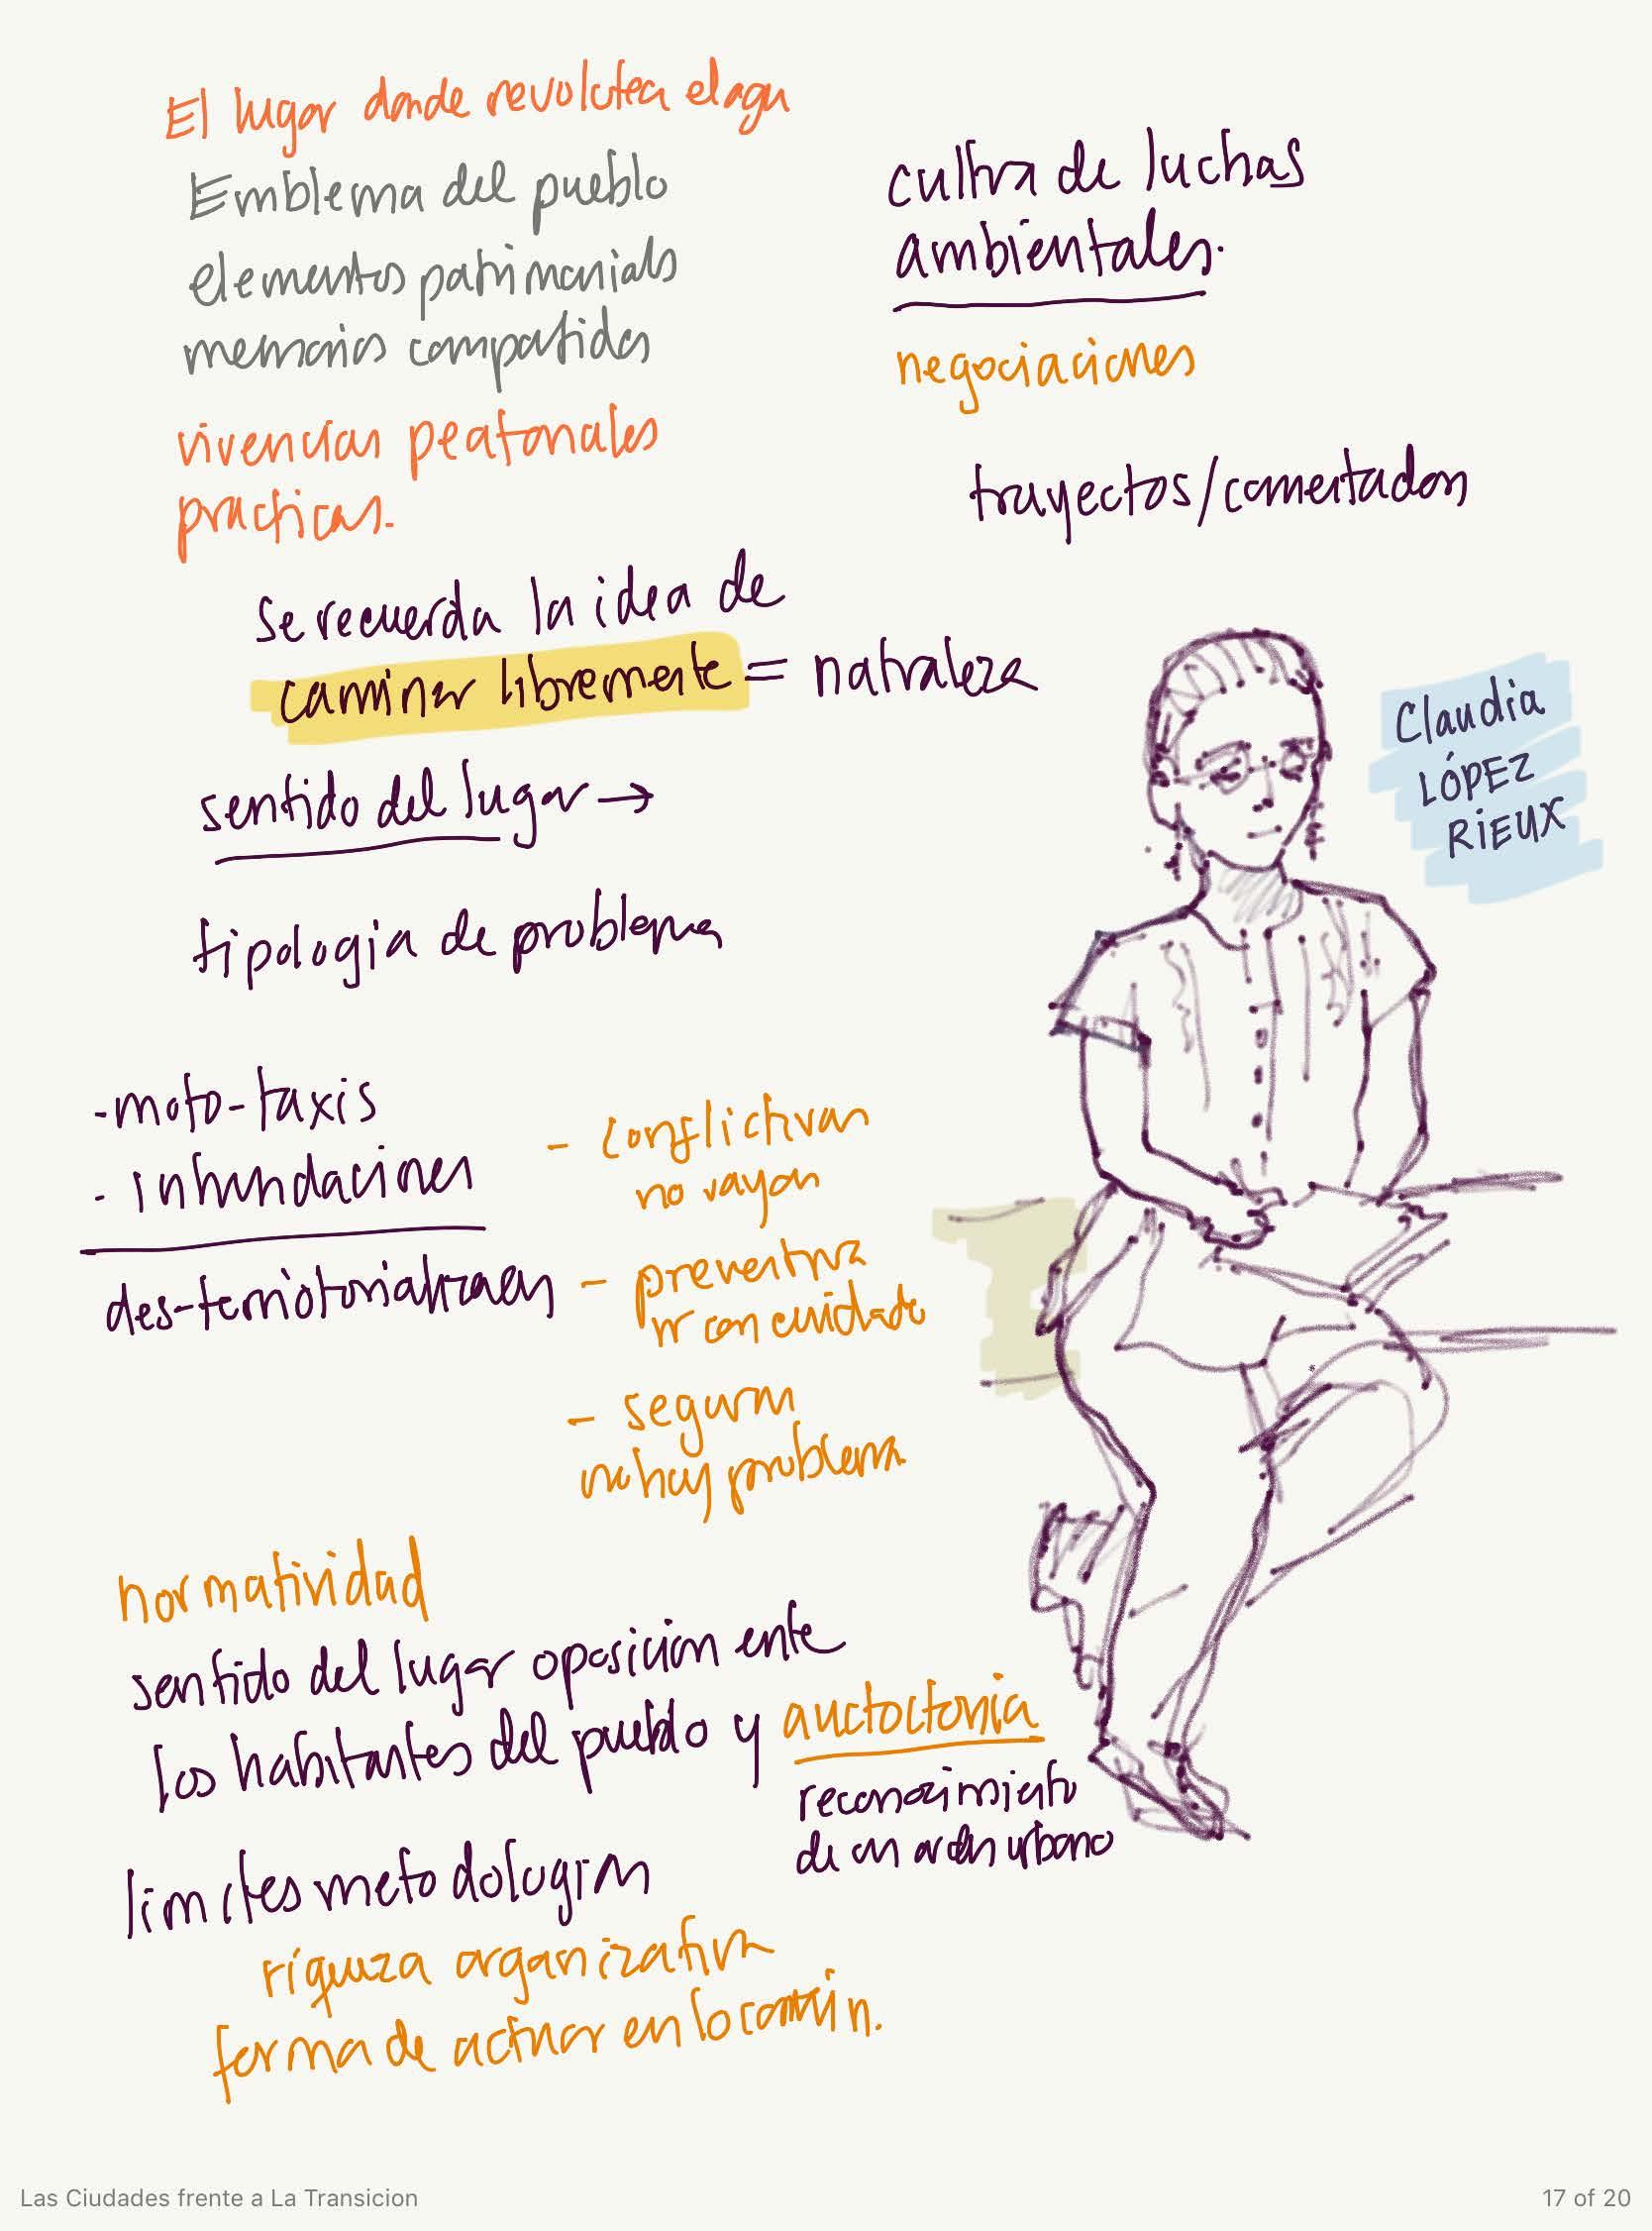 El lugar donde revolotea el agu
Emblema del pueblo
elementos patrimonials
memorias compatidas
vivencias peatonales
practicas.
cultura de luchas
ambientales.
negociaciones
trayectos/comentados
se recuerda la idea de
caminar libremente = natraleza
sentido del lugar →
tipologia de problema
Claudia
LÓPEZ
RIEUX
-moto-taxis
- inhundaciones
des-territorializacion
- conflictivas
no vayan
- preventiva
ir con cuidado
- segura
no hay problema
normatividad
sentido del lugar oposicion ente
los habitantes del pueblo y auctoctonia
reconocimiento
de un orden urbano
limites metodologicos
riqueza organizativa
forma de actuar en lo común.
Las Ciudades frente a La Transicion
17 of 20